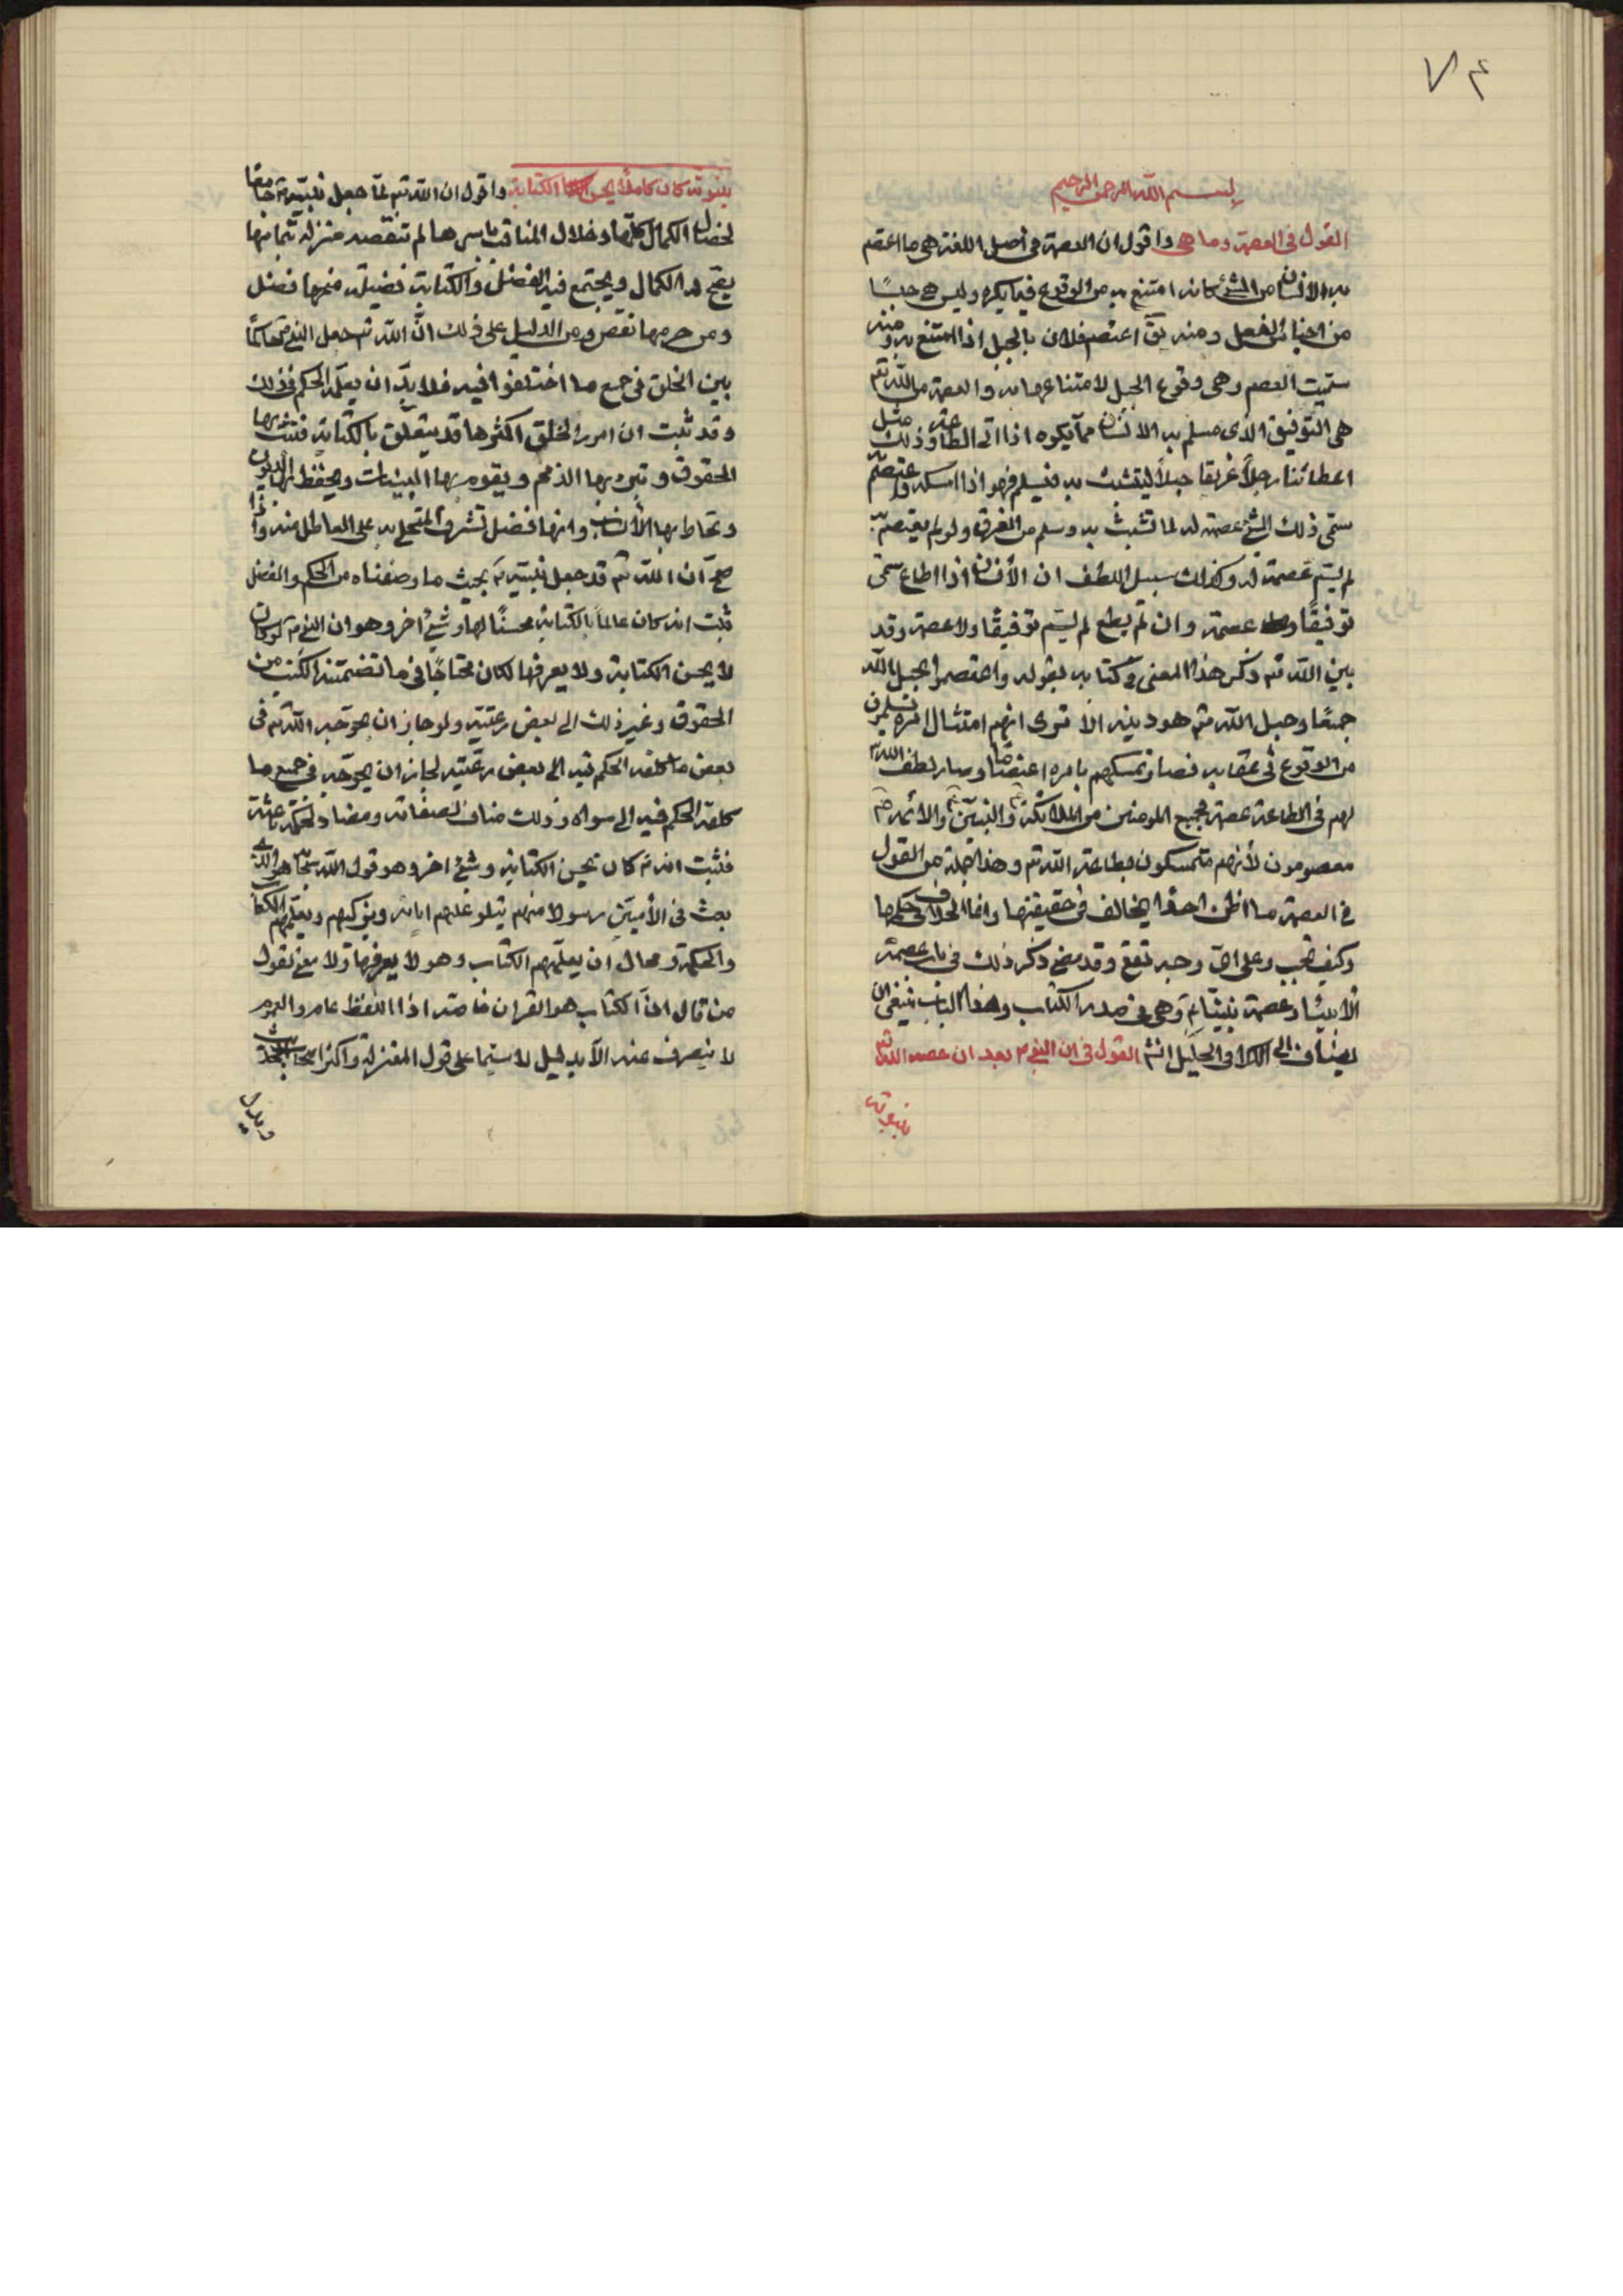 ٧٤
بسم الله الرحمن الرحيم
القول في العصمة وما هي واقول ان العصمة في اصل اللغة هي ما اعتصم
به الانسان من الشئ كانه امتنع به من الوقوع فيما يكره وليس هي جنسًا
من اجناس الفعل ومنه يقّ اعتصم فلان بالجبل اذا امتنع به ومنه
سمّيت العصم وهي وعول الجبل لامتناعها به والعصمة من الله تعم
هي التوفيق الذى يسلم به الانسان ممّا يكره اذا اتى الطاعة وذلك مثل
اعطائنا رجلًا غريقا حبلًا ليتشبث به فيسلم فهو اذا امسكه واعتصم به
سمّى ذلك الشئ عصمة له لما تشبث به وسلم من الغرق ولو لم يعتصم به
لم يسمّ عصمة له وكذلك سبيل اللطف ان الأنسان اذا اطاع سمّى
توفيقًا وعصمة وان لم يطع لم يسم توفيقًا ولا عصمة وقد
بين الله تم ذكر هذا المعنى في كتابه بقوله واعتصموا بحبل الله
جميعًا وحبل الله تم هو دينه الا ترى انهم امتثال امره يسلمون
من الوقوع في عقابه فصار تمسكهم بامره اعتصامًا وصار لطف الله تم
لهم في الطاعة عصمة فجميع المومنين من الملائكة والنبيّين والائمه ع
معصومون لأنهم متمسكون بطاعة الله تم وهذا جملة من القول
في العصمة ما اظن احدًا يخالف في حقيقتها وانما الخلاف في حكمها
وكيف تجب وعلى ايّ وجه تقع وقد مضى ذكر ذلك في باب عصمة
الانبياء وعصمة نبيّنا ع وهي في صدر الكتاب وهذا الباب ينبغى ان
يضاف الى الكلام الجليل انشم القول في ان النبى ص بعد ان خصه الله تم
بنبوته
بنبوته كان كاملًا يحسن الكتابة واقول ان الله تم لمّا جعل نبيّه ص جامعًا
لخصال الكمال كلّها وخلال المناقب باسرها لم تنقصه منزلة بتمامها
يصح له الكمال ويجتمع فيه الفضل والكتابة فضيلة من منحها فضل
ومن حرمها نقص ومن الدليل على ذلك انّ الله تم جعل النبى ص حاكمًا
بين الخلق في جميع ما اختلفوا فيه فلا بدّ ان يعلّمه الحكم في ذلك
وقد ثبت ان امور الخلق اكثرها قد يتعلّق بالكتابة فتثبت بها
الحقوق وتبرى بها الذمم ويقوم بها البينات ويحفظ بها الديون
وتحاط بها الأنساب وانها فضل تشرف المتحلى به على العاطل منه واذا
صحّ ان الله تم قد جعل نبيّه ص بحيث ما وصفناه من الحكم والفضل
ثبت انه كان عالماً بالكتابة محسنًا لها وشئ اخر وهو ان النبى ص لو كان
لا يحسن الكتابة ولا يعرفها لكان محتاجًا في ما تضمّنته الكتب من
الحقوق وغير ذلك الى بعض رعيّته ولو جاز ان يحوّجه الله تم في
بعض ما كلفه الحكم فيه الى بعض رعيّته لجاز ان يحوّجه في جميع ما
كلفه الحكم فيه الى سواه وذلك مناف لصفاته ومضاد لحكمة باعثه
فثبت انه ص كان يحسن الكتابة وشئ اخر وهو قول الله سبحانه هو الذى
بعث في الأميّين رسولا منهم يتلو عليهم اياته ويزكيهم ويعلّمهم الكتاب
والحكمة ومحال ان يعلّمهم الكتاب وهو لا يعرفها ولا معنى لقول
من قال انّ الكتاب هو القران خاصة اذا اللفظ عام والعموم
لا ينصرف عنه الّا بدليل لا سيّما على قول المعتزلة واكثر اصحاب الحديث
ويدل